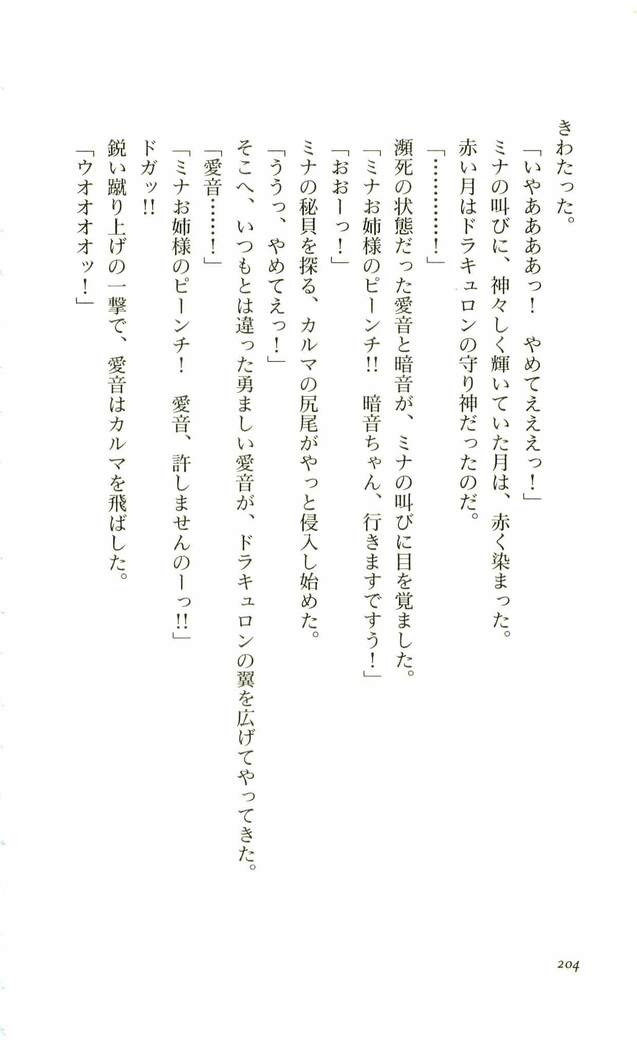 きわたった。
「いやああああっ！　やめてえええっ！」
ミナの叫びに、神々しく輝いていた月は、赤く染まった。
赤い月はドラキュロンの守り神だったのだ。
「…………！」
瀕死の状態だった愛音と暗音が、ミナの叫びに目を覚ました。
「ミナお姉様のピーンチ!!　暗音ちゃん、行きますですう！」
「おおーっ！」
ミナの秘貝を探る、カルマの尻尾がやっと侵入し始めた。
「ううっ、やめてえっ！」
そこへ、いつもとは違った勇ましい愛音が、ドラキュロンの翼を広げてやってきた。
「愛音……！」
「ミナお姉様のピーンチ！　愛音、許しませんのーっ!!」
ドガッ!!
鋭い蹴り上げの一撃で、愛音はカルマを飛ばした。
「ウオオオオッ！」
204